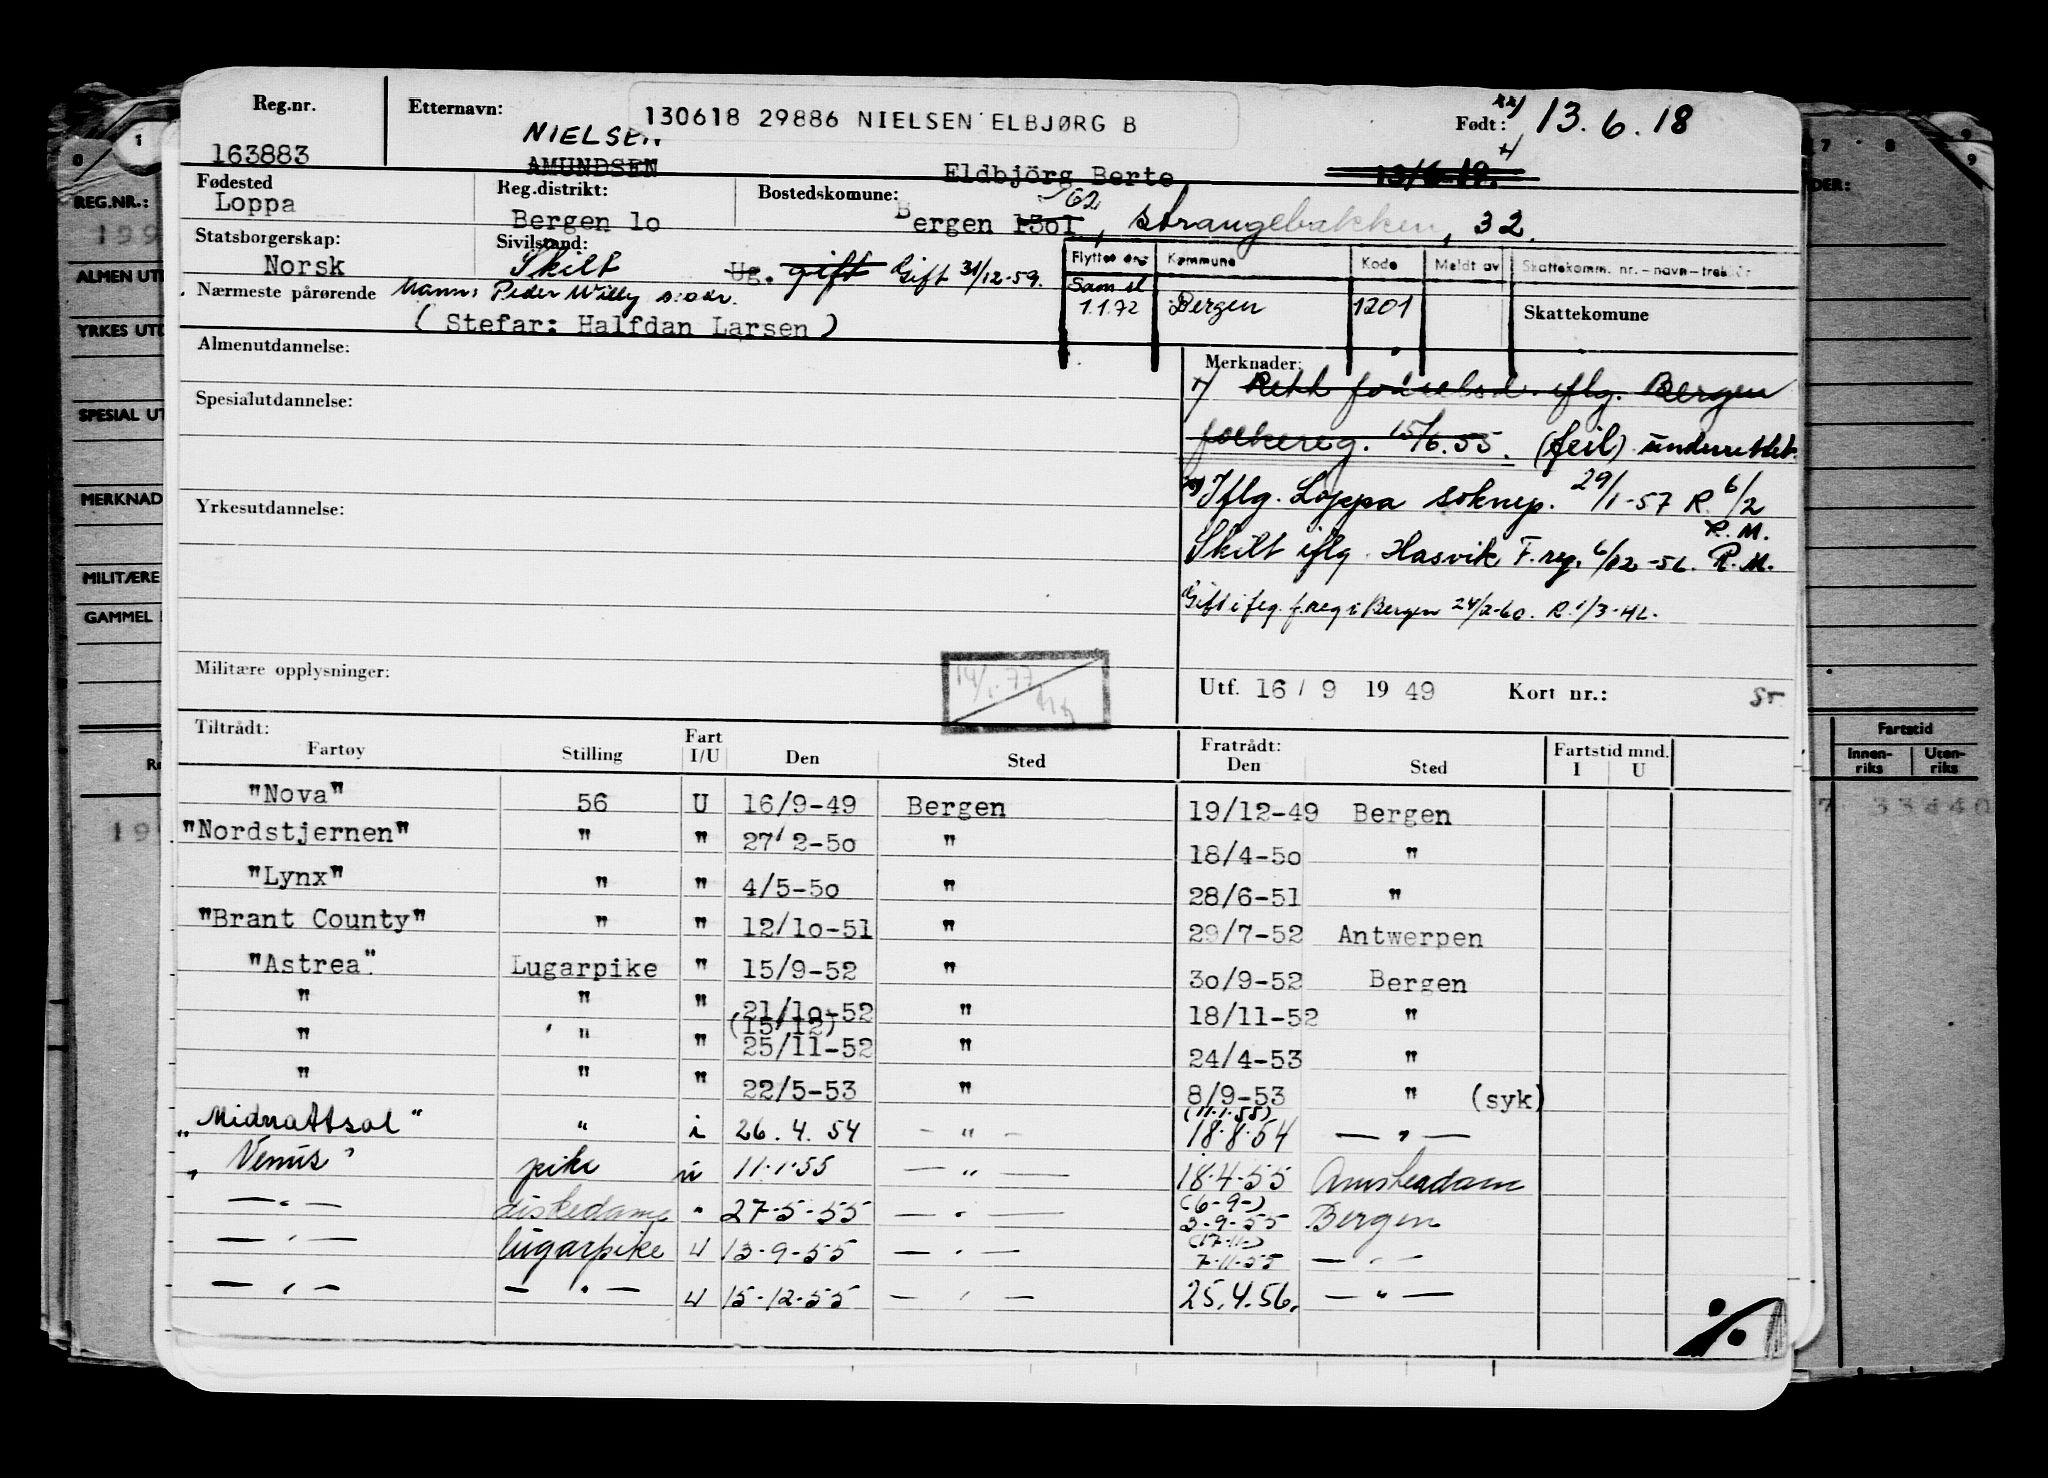 Reg.nr. Etternavn: 130618 29886 NIELSEN ELBJØRG B Født: xx) 13.6.18
163883 NIELSEN AMUNDSEN Eldbjörg Berte 13/6-19. x)
Fødested Reg.distrikt: Bostedskomune:
Loppa Bergen 10 Bergen 1301 /62, Strangebakken, 32.
Statsborgerskap: Sivilstand:
Norsk Skilt Ug. gift Gift 31/12-59.
Flyttet Kommune Kode Meldt av Skattekomm. nr.-navn-
Nærmeste pårørende Mann: Peder Willy s.adr.
(Stefar: Halfdan Larsen)
Sam sl 1.1.72 Bergen 1201 Skattekomune
Almenutdannelse:
Spesialutdannelse:
Yrkesutdannelse:
Merknader:
x) Rett fødselsd. iflg. Bergen
folkereg. 15/6.55. (feil) underrettet.
xx) Iflg. Loppa soknep. 29/1-57 R. 6/2
R.M.
Skilt iflg. Hasvik F.reg. 6/12-56. R.M.
Gift i flg. f.reg i Bergen 24/2-60. R. 1/3-HL.
Militære opplysninger: 14/1.77
Utf. 16/9 1949 Kort nr.:
Tiltrådt:
Fartøy Stilling Fart I/U Den Sted Fratrådt: Den Sted Fartstid mnd. I U
"Nova" 56 U 16/9-49 Bergen 19/12-49 Bergen
"Nordstjernen" " " 27/2-50 " 18/4-50 "
"Lynx" " " 4/5-50 " 28/6-51 "
"Brant County" " " 12/10-51 " 29/7-52 Antwerpen
"Astrea" Lugarpike " 15/9-52 " 30/9-52 Bergen
" " " 21/10-52 " 18/11-52 "
" " " (15/12) 25/11-52 " 24/4-53 "
" " " 22/5-53 " 8/9-53 " (syk)
"Midnattsol" " i 26.4.54 - " - (11.1.55) 18.8.54 - " -
"Venus" pike u 11.1.55 - " - 18.4.55 Amsterdam
- " - diskedame " 27-5-55 - " - (6-9-) 3-9-55 Bergen
- " - lugarpike u 13-9-55 - " - (17-11-) 7-11-55 - " -
- " - - " - u 15-12-55 - " - 25.4.56. - " -
REG.NR.:
199
ALMEN UT
YRKES UTD
SPESIAL UT
MERKNAD
MILITÆRE
GAMMEL
DER:
Fartstid
Innen-riks Uten-riks
33440